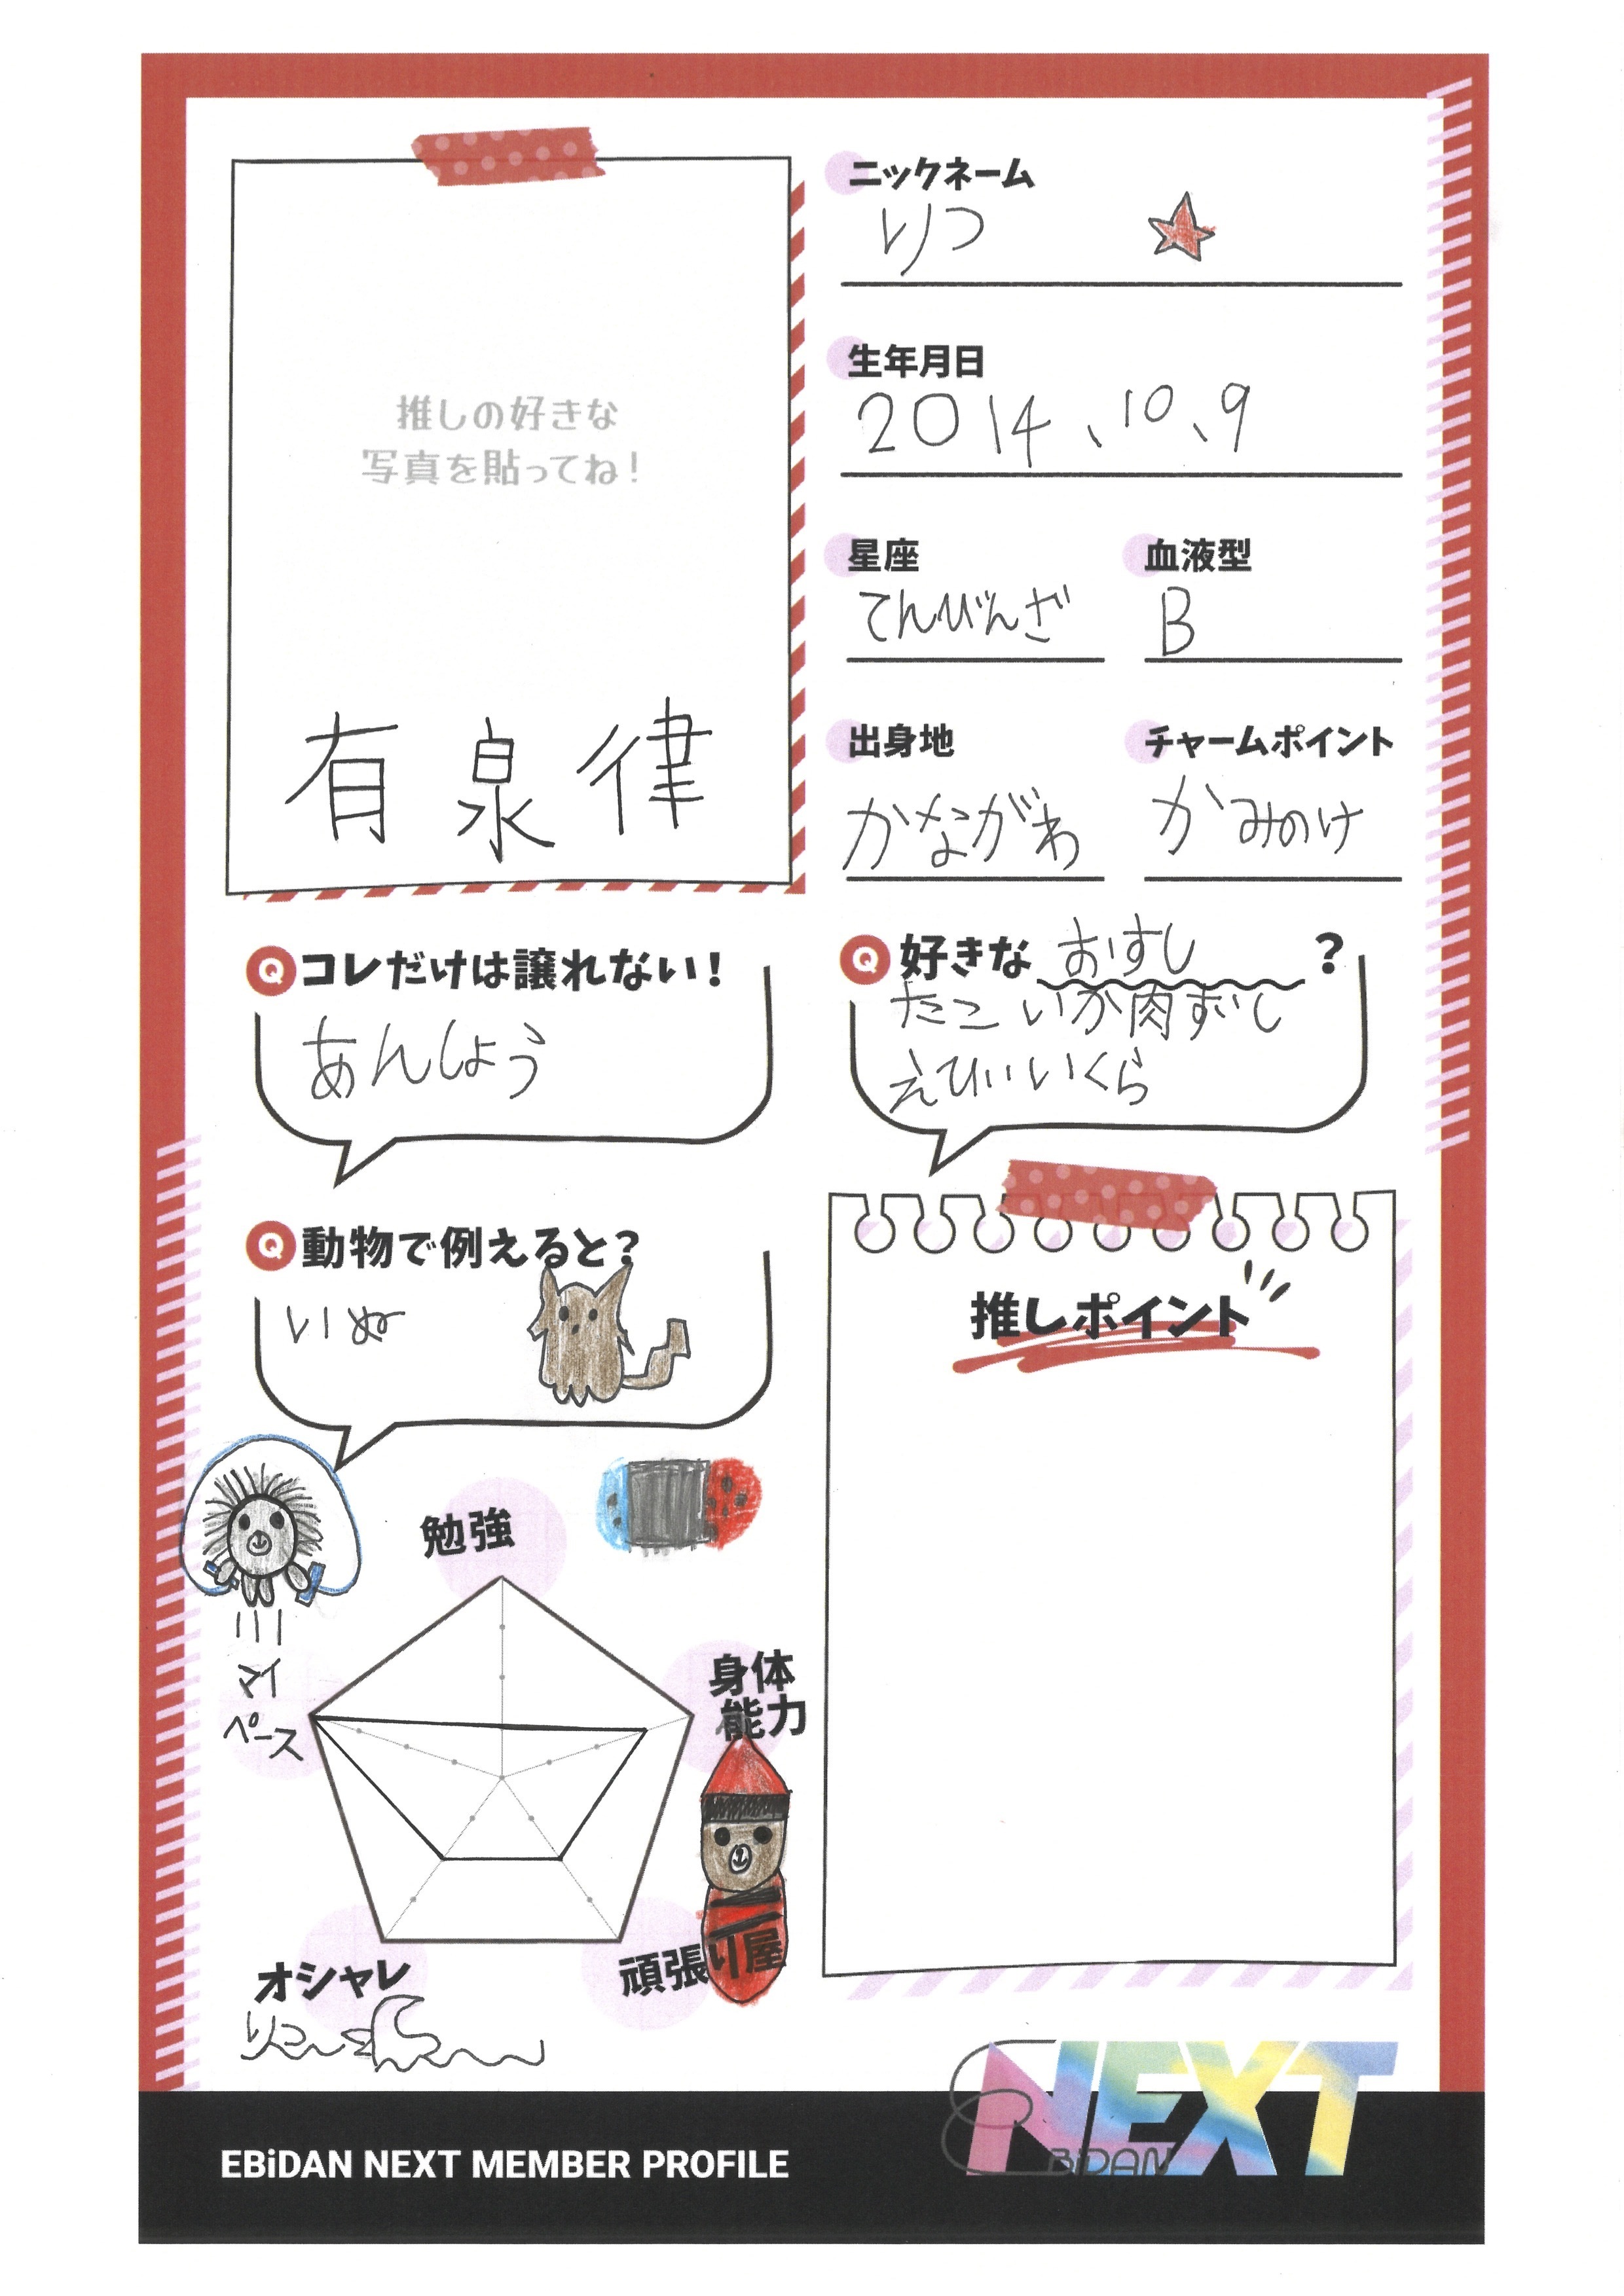 推しの好きな
写真を貼ってね！
有泉律
ニックネーム
りつ
生年月日
2014、10、9
星座
てんびんざ
血液型
B
出身地
かながわ
チャームポイント
かみのけ
Q コレだけは譲れない！
あんしょう
Q 好きな おすし ？
たこ いか 肉ずし
えび いくら
Q 動物で例えると？
いぬ
推しポイント
勉強
身体
能力
マイ
ペース
オシャレ
頑張り屋
りつ
EBiDAN NEXT MEMBER PROFILE
NEXT
EBiDAN